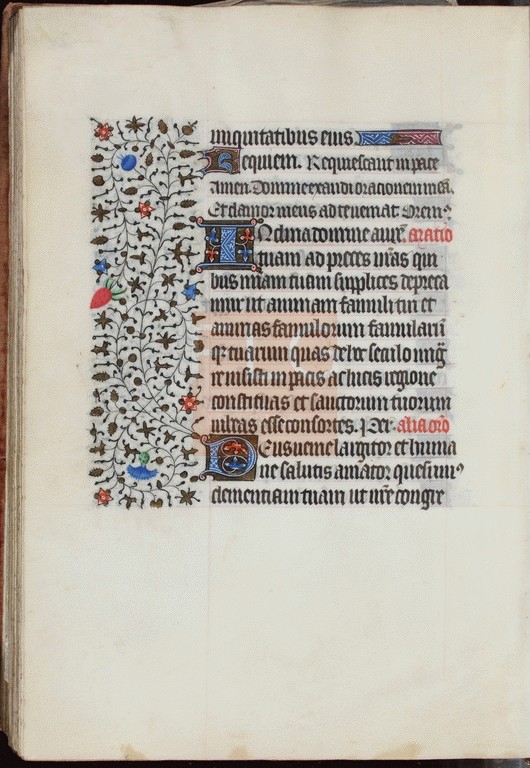 iniquitatibus eius.
Requiem. Requiescant in pace
Amen. Domine exaudi orationem mea.
Et clamor meus ad te veniat Orem⁹
Inclina domine aurē. oratio
tuam ad preces nr̄as qui
bus miām tuam supplices depreca
mur ut animam famuli tui et
animas famulorum famulariū
qꝫ tuarum quas de hoc seculo migͣ
re iussisti in pacis ac lucis regione
constituas et sanctorum tuorum
iubeas esse consortes. Per. alia orō
Deus venie largitor et huma
ne salutis amator quesum⁹
clementiam tuam ut nr̄e congre